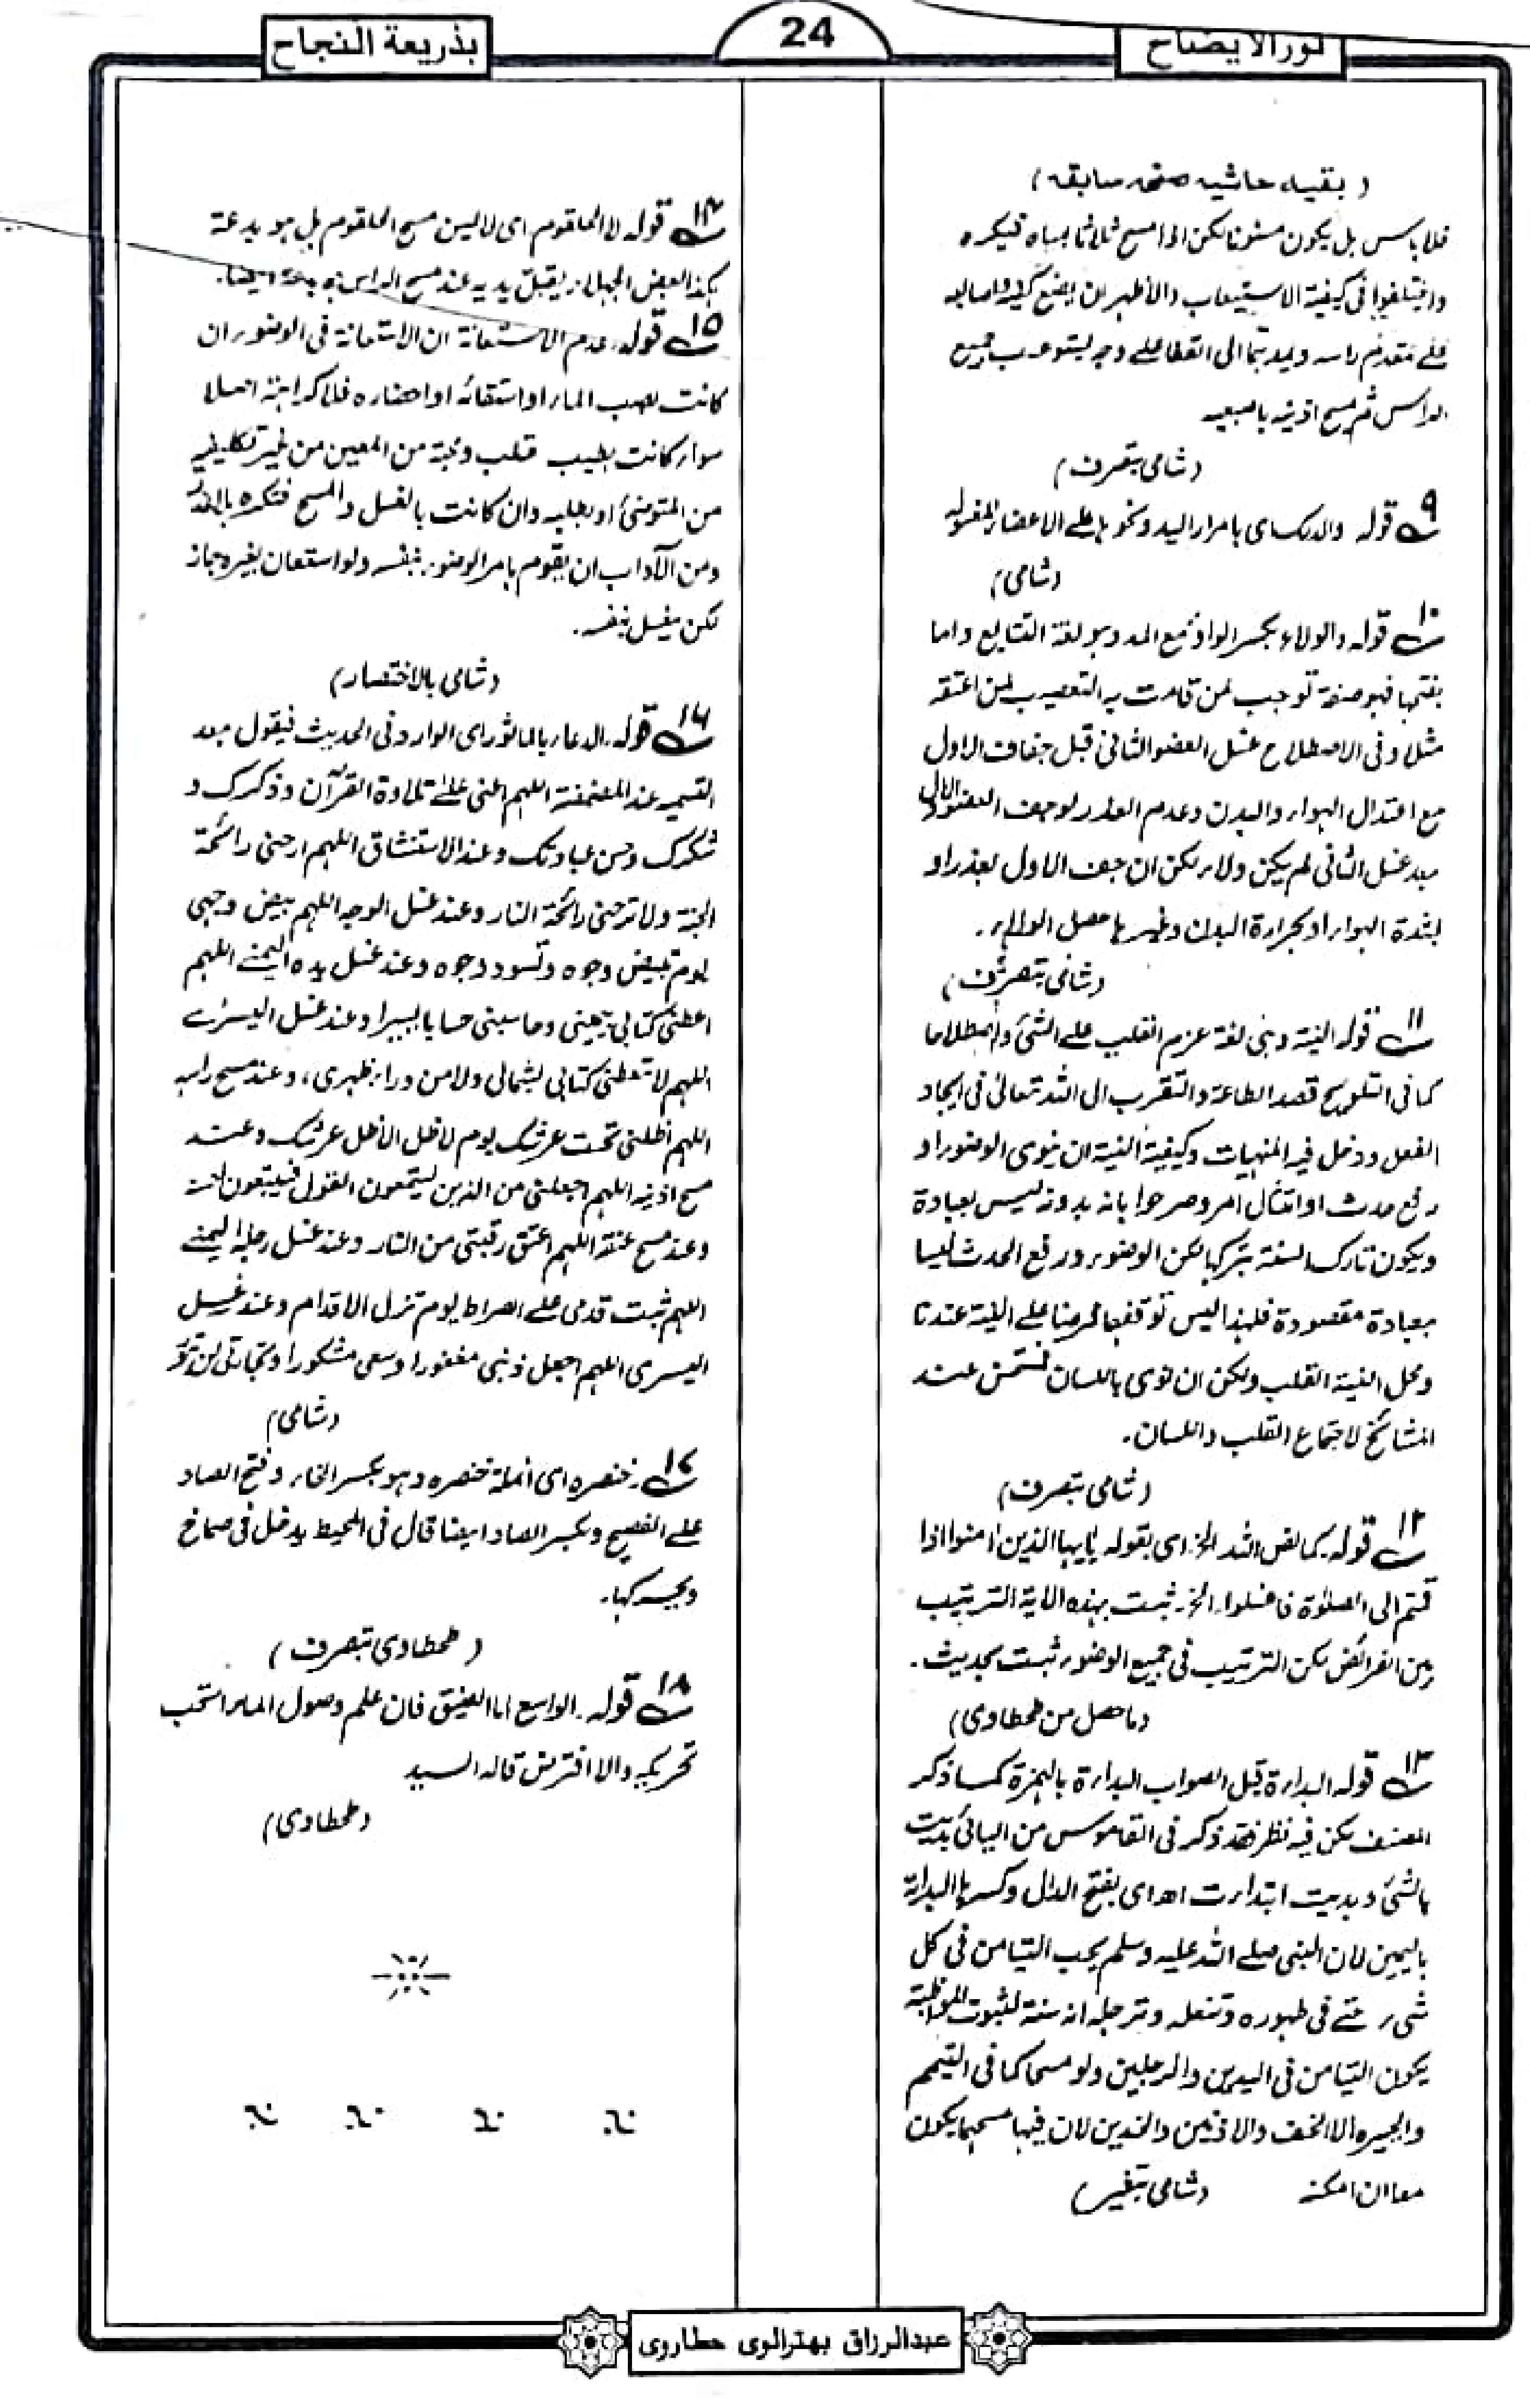 نور الايضاح
24
بذريعة النجاح
(بقيه حاشيه صفحه سابقه)
فلا باس بل يكون مسنونا لكن اذا مسح ثلاثا بمياه فيكره
واختلفوا فى كيفية الاستيعاب والأظهر ان يضع كفيه واصابعه
على مقدم راسه ويمدهما الى القفا على وجه يستوعب جميع
الراس ثم يمسح اذنيه باصبعيه
(شامى بتصرف)
٩ قوله والدلك اى بامرار اليد ونحوها على الاعضاء المغسولة
(شامى)
١٠ قوله والولاء بكسر الواو مع المد وهو لغة التتابع واما
بفتحها فهو صفة توجب لمن قامت به التعصيب لمن اعتقه
مثلا وفى الاصطلاح غسل العضو الثانى قبل جفاف الاول
مع اعتدال الهواء والبدن وعدم العذر لو جف العضو الاول
بعد غسل الثانى لم يكن ولاء لكن ان جف الاول لعذر او
لشدة الهواء او لحرارة البدن وغيرها حصل الولاء.
(شامى بتصرف)
١١ قوله النية وهى لغة عزم القلب على الشئ واصطلاحا
كما فى التلويح قصد الطاعة والتقرب الى الله تعالى فى ايجاد
الفعل ودخل فيه المنهيات وكيفية النية ان ينوى الوضوء او
رفع حدث او امتثال امر وصرحوا بانه بدونها ليس بعبادة
ويكون تارك السنة بتركها لكن الوضوء ورفع الحدث ليسا
بعبادة مقصودة فلهذا ليس توقفها فرضا على النية عندنا
ومحل النية القلب ولكن ان نوى باللسان فمستحسن عند
المشائخ لاجتماع القلب واللسان.
(شامى بتصرف)
١٢ قوله كما نص الله الخ اى بقوله يايها الذين امنوا اذا
قمتم الى الصلوٰة فاغسلوا الخ ثبت بهذه الاية الترتيب
بين الفرائض لكن الترتيب فى جميع الوضوء ثبت بحديث.
(ماحصل من طحطاوى)
١٣ قوله البداءة قيل الصواب البداءة بالهمزة كما ذكر
المصنف لكن فيه نظر فقد ذكر فى القاموس من اليائى بديت
بالشئ وبديت ابتداءت اھ اى بفتح الدال وكسرها البداءة
باليمين لان النبى صلى الله عليه وسلم يحب التيامن فى كل
شىء حتى فى طهوره وتنعله وترجله انه سنة لثبوت المواظبة
يكون التيامن فى اليدين والرجلين ولو مسحا كما فى التيمم
والجبيره الا الخف والاذنين والخدين لان فيها مسحهما يكون
معا ان امكنه (شامى بتغير)
١٤ قوله لا الحلقوم اى لا ليس مسح الحلقوم بل هو بدعة
هكذا لبعض الجهلاء يقبل يديه عند مسح الراس بدعة ايضا.
١٥ قوله عدم الاستعانة ان الاستعانة فى الوضوء ان
كانت بصب الماء او استقائه او احضاره فلا كراهة اصلا
سواء كانت بطيب قلب ومحبة من المعين من غير تكليف
من المتوضئ او بطلبه وان كانت بالغسل والمسح فتكره بلا عذر
ومن الآداب ان يقوم بامر الوضوء بنفسه ولو استعان بغيره جاز
لكن يغسل بنفسه.
(شامى بالاختصار)
١٦ قوله الدعاء بالماثور اى الوارد فى الحديث فيقول بعد
التسميه عند المضمضة اللهم اعنى على تلاوة القرآن وذكرك و
شكرك وحسن عبادتك وعند الاستنشاق اللهم ارحنى رائحة
الجنة ولا ترحنى رائحة النار وعند غسل الوجه اللهم بيض وجهى
يوم تبيض وجوه وتسود وجوه وعند غسل يده اليمنى اللهم
اعطنى كتابى بيمينى وحاسبنى حسابا يسيرا وعند غسل اليسرى
اللهم لا تعطنى كتابى بشمالى ولا من وراء ظهرى، وعند مسح راسه
اللهم اظلنى تحت عرشك يوم لا ظل الا ظل عرشك وعند
مسح اذنيه اللهم اجعلنى من الذين يستمعون القول فيتبعون احسنه
وعند مسح عنقه اللهم اعتق رقبتى من النار وعند غسل رجله اليمنى
اللهم ثبت قدمى على الصراط يوم تزل الاقدام وعند غسل
اليسرى اللهم اجعل ذنبى مغفورا وسعى مشكورا وتجارتى لن تبور
(شامى)
١٧ خنصره اى انملة خنصره وهو بكسر الخاء وفتح الصاد
على الفصيح وبكسر الصاد ايضا قال فى المحيط يدخل فى صماخ
ويحركها.
(طحطاوى بتصرف)
١٨ قوله الواسع اما الضيق فان علم وصول الماء استحب
تحريكه والا افترض قاله السيد
(طحطاوى)
عبدالرزاق بهترالوى حطاروى